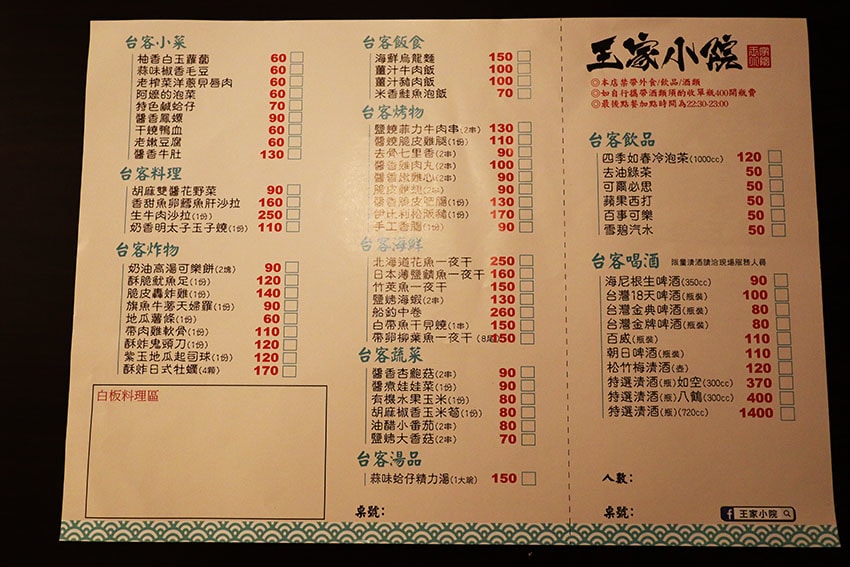 台客小菜
柚香白玉蘿蔔 60
蒜味椒香毛豆 60
老榨菜洋蔥貝唇肉 60
阿嬤的泡菜 60
特色鹹蛤仔 70
醬香鳳螺 90
干燒鴨血 60
老嫩豆腐 60
醬香牛肚 130
台客料理
胡麻雙醬花野菜 90
香甜魚卵鱈魚肝沙拉 160
生牛肉沙拉(1份) 250
奶香明太子玉子燒(1份) 110
台客炸物
奶油高湯可樂餅(2塊) 90
酥脆魷魚足(1份) 120
脆皮轟炸雞(1份) 140
旗魚牛蒡天婦羅(1份) 90
地瓜薯條(1份) 60
帶肉雞軟骨(1份) 110
酥炸鬼頭刀(1份) 120
紫玉地瓜起司球(1份) 120
酥炸日式牡蠣(4顆) 170
白板料理區
台客飯食
海鮮烏龍麵 150
薑汁牛肉飯 100
薑汁豬肉飯 100
米香鮭魚泡飯 70
台客烤物
鹽燒菲力牛肉串(2串) 130
醬燒脆皮雞腿(1份) 110
去骨七里香(2串) 90
醬香雞肉丸(2串) 100
醬香嫩雞心(2串) 90
90
醬香脆皮肥腸(1份) 130
伊比利松阪豬(1份) 170
手工香腸(1份) 90
台客海鮮
北海道花魚一夜干 250
日本薄鹽鯖魚一夜干 160
竹筴魚一夜干 150
鹽烤海蝦(2串) 130
船釣中卷 260
白帶魚干貝燒(1串) 150
帶卵柳葉魚一夜干 150
台客蔬菜
醬香杏鮑菇(2串) 90
醬煮娃娃菜(1份) 90
有機水果玉米(1份) 80
胡麻椒香玉米筍(1份) 80
油醋小番茄(2串) 80
鹽烤大香菇(2串) 70
台客湯品
蒜味蛤仔精力湯(1大碗) 150
桌號:
王家小院
◎本店禁帶外食/飲品/酒類
◎如自行攜帶酒類須酌收單瓶400開瓶費
◎最後點餐加點時間為22:30-23:00
台客飲品
四季如春冷泡茶(1000cc) 120
去油綠茶 50
可爾必思 50
蘋果西打 50
百事可樂 50
雪碧汽水 50
台客喝酒 限量清酒請洽現場服務人員
海尼根生啤酒(350cc) 90
台灣18天啤酒(瓶裝) 100
台灣金典啤酒(瓶裝) 80
台灣金牌啤酒(瓶裝) 80
百威(瓶裝) 110
朝日啤酒(瓶裝) 110
松竹梅清酒(壺) 120
特選清酒(瓶)如空(300cc) 370
特選清酒(瓶)八鶴(300cc) 400
特選清酒(瓶)(720cc) 1400
人數:
桌號:
f 王家小院